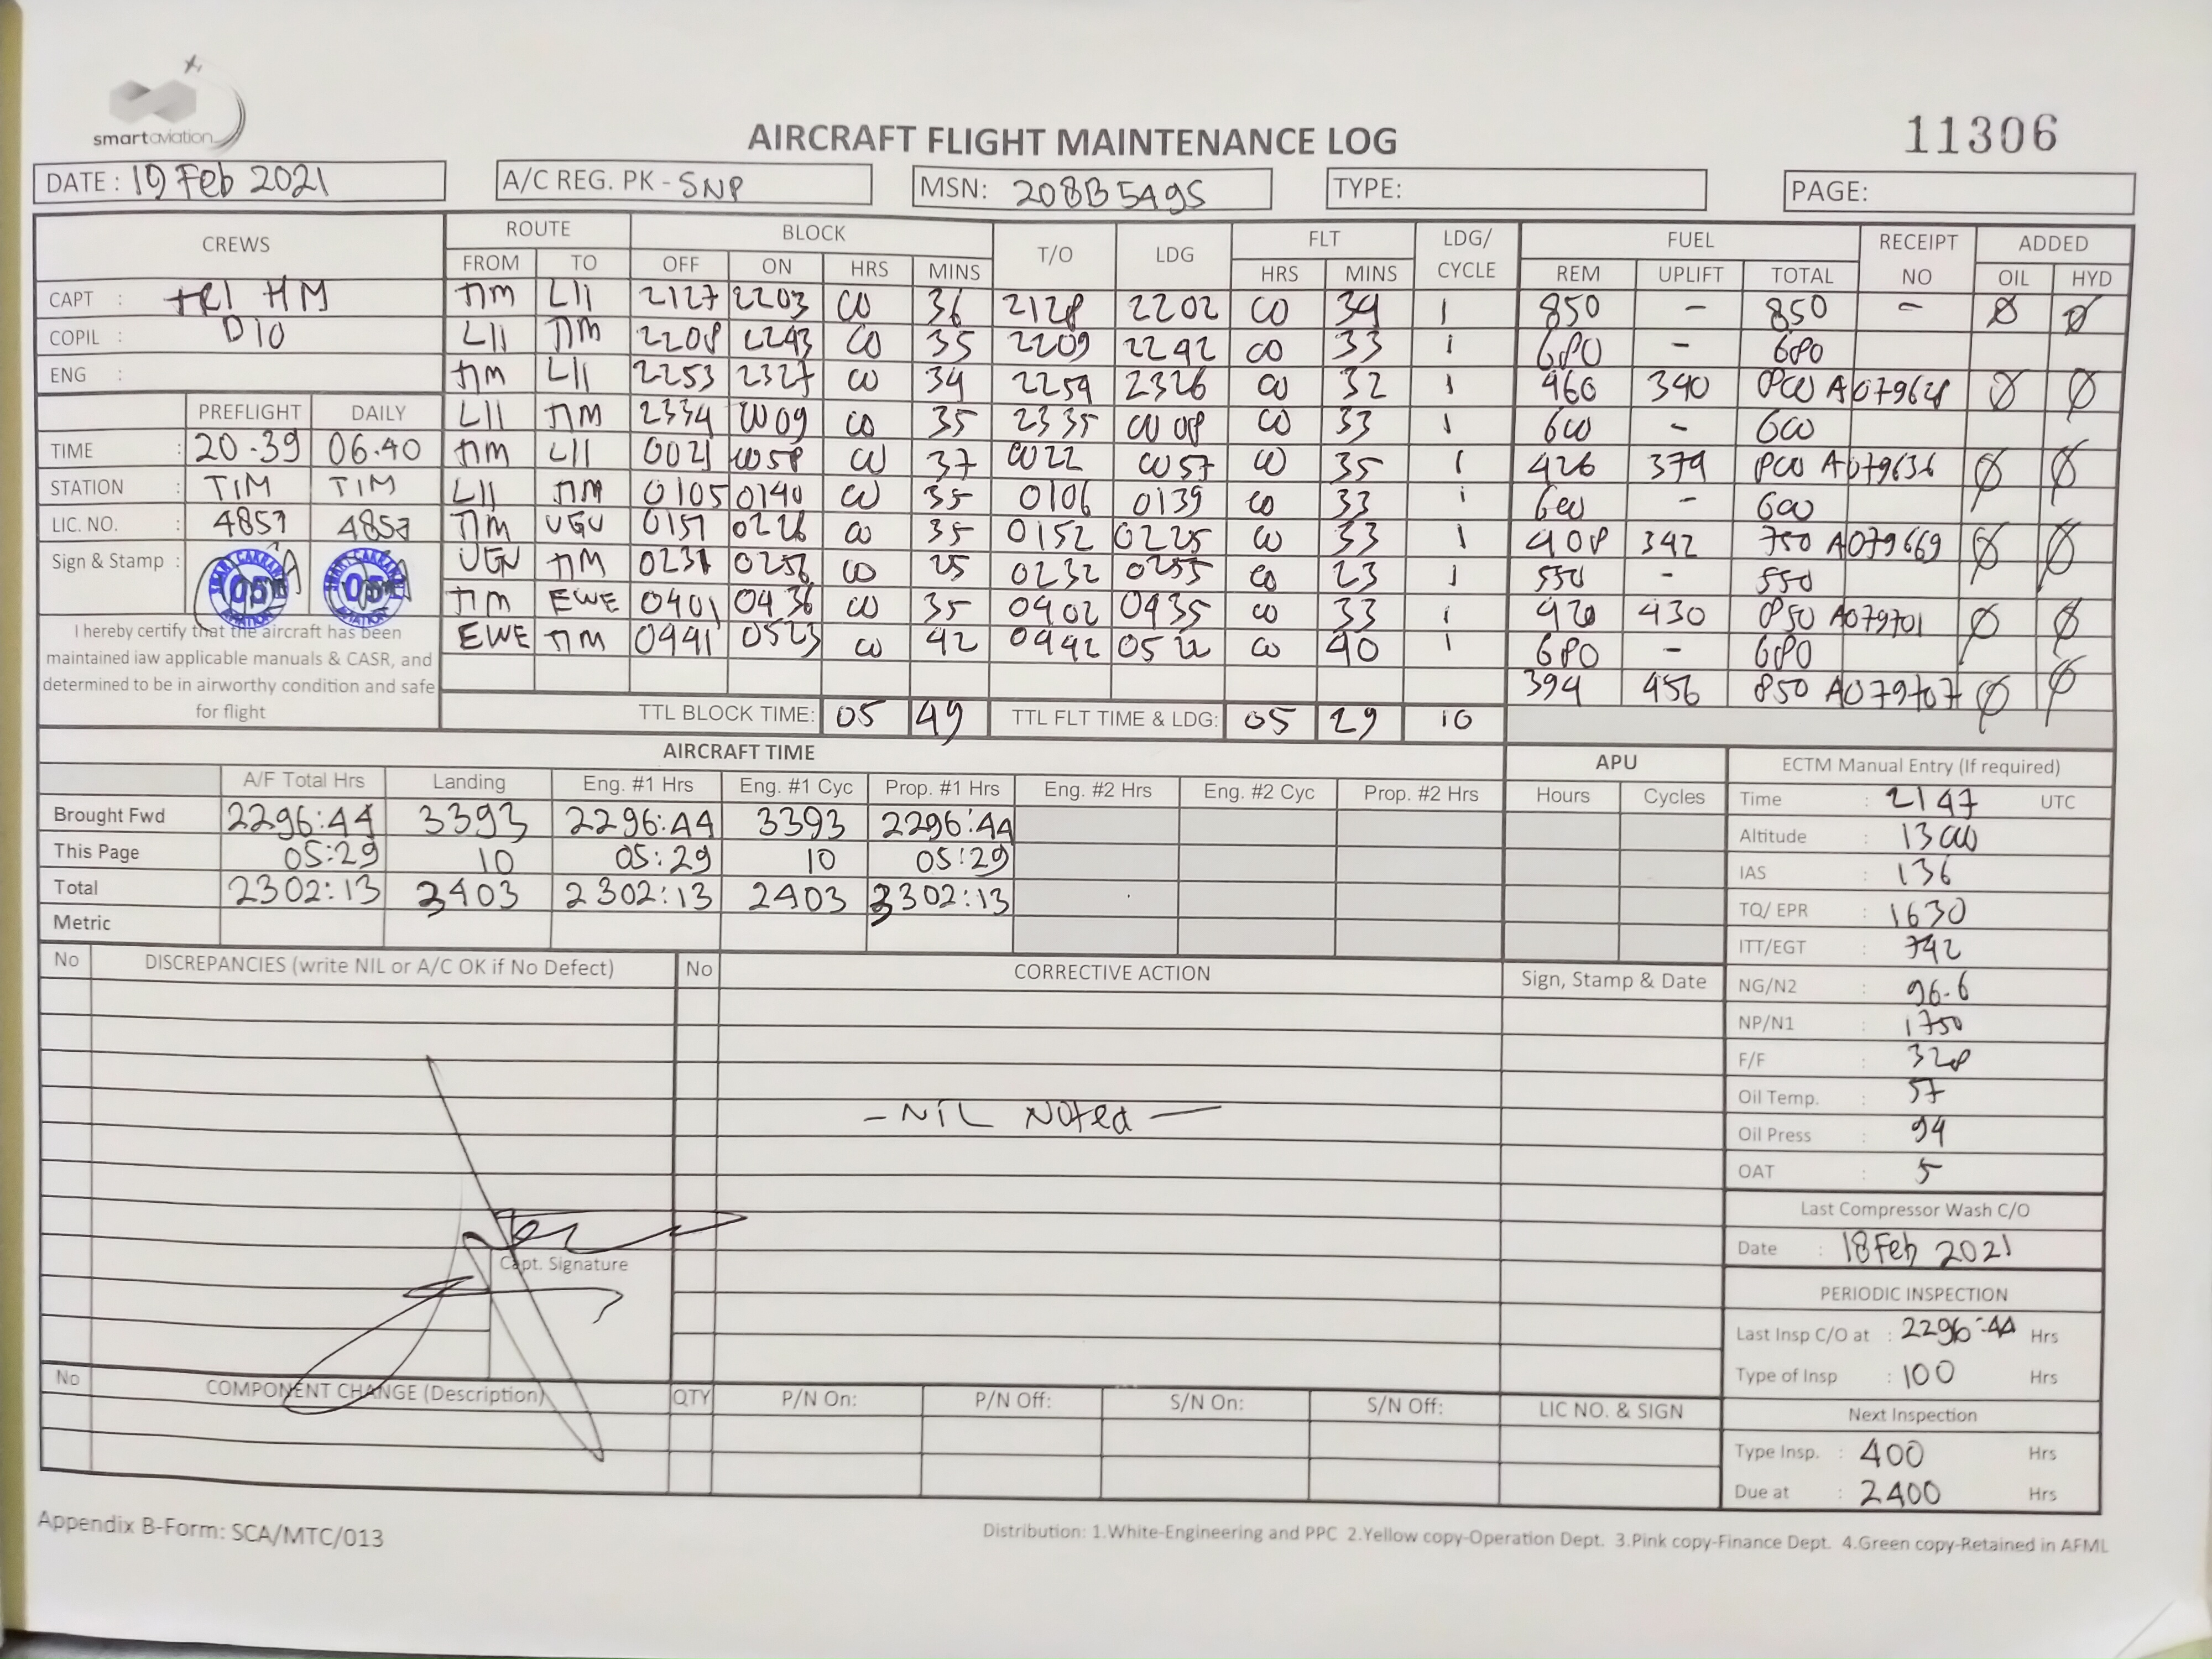 smartaviation
AIRCRAFT FLIGHT MAINTENANCE LOG
11306
DATE : 19 Feb 2021
A/C REG. PK - SNP
MSN: 208B5495
TYPE:
PAGE:
CREWS ROUTE BLOCK T/O LDG FLT LDG/ CYCLE FUEL RECEIPT NO ADDED
FROM TO OFF ON HRS MINS HRS MINS REM UPLIFT TOTAL OIL HYD
CAPT : HM TIM LII 2127 2203 00 36 2128 2202 00 34 1 850 - 850 - Ø Ø
COPIL : DIO LII TIM 2208 2243 00 35 2209 2242 00 33 1 680 - 680
ENG : TIM LII 2253 2327 00 34 2254 2326 00 32 1 460 340 800 A079628 Ø Ø
PREFLIGHT DAILY LII TIM 2334 0009 00 35 2335 0008 00 33 1 600 - 600
TIME : 20.39 06.40 TIM LII 0021 0058 00 37 0022 0057 00 35 1 426 374 800 A079636 Ø Ø
STATION : TIM TIM LII TIM 0105 0140 00 35 0106 0139 00 33 1 600 - 600
LIC. NO. : 4857 4857 TIM UGU 0151 0226 00 35 0152 0225 00 33 1 408 342 750 A079669 Ø Ø
Sign & Stamp : UGU TIM 0231 0256 00 25 0232 0255 00 23 1 550 - 550
TIM EWE 0401 0436 00 35 0402 0435 00 33 1 420 430 850 A079701 Ø Ø
EWE TIM 0441 0523 00 42 0442 0522 00 40 1 680 - 680
394 456 850 A079707 Ø Ø
I hereby certify that the aircraft has been
maintained iaw applicable manuals & CASR, and
determined to be in airworthy condition and safe
for flight
TTL BLOCK TIME: 05 49 TTL FLT TIME & LDG: 05 29 10
AIRCRAFT TIME APU ECTM Manual Entry (If required)
A/F Total Hrs Landing Eng. #1 Hrs Eng. #1 Cyc Prop. #1 Hrs Eng. #2 Hrs Eng. #2 Cyc Prop. #2 Hrs Hours Cycles
Brought Fwd 2296:44 3393 2296:44 3393 2296:44
This Page 05:29 10 05:29 10 05:29
Total 2302:13 3403 2302:13 2403 2302:13
Metric
Time : 2147 UTC
Altitude : 1300
IAS : 136
TQ/ EPR : 1630
ITT/EGT : 742
NG/N2 : 96.6
NP/N1 : 1750
F/F : 328
Oil Temp. : 57
Oil Press : 94
OAT : 5
No DISCREPANCIES (write NIL or A/C OK if No Defect) No CORRECTIVE ACTION Sign, Stamp & Date
- NIL Noted -
Capt. Signature
Last Compressor Wash C/O
Date : 18 Feb 2021
PERIODIC INSPECTION
Last Insp C/O at : 2296:44 Hrs
Type of Insp : 100 Hrs
Next Inspection
Type Insp. : 400 Hrs
Due at : 2400 Hrs
No COMPONENT CHANGE (Description) QTY P/N On: P/N Off: S/N On: S/N Off: LIC NO. & SIGN
Appendix B-Form: SCA/MTC/013
Distribution: 1.White-Engineering and PPC 2.Yellow copy-Operation Dept. 3.Pink copy-Finance Dept. 4.Green copy-Retained in AFML